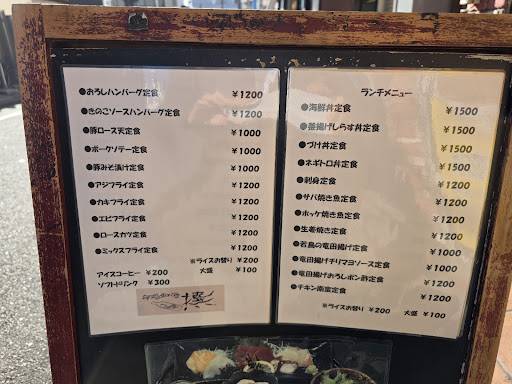 ●おろしハンバーグ定食 ¥1200
●きのこソースハンバーグ定食 ¥1200
●豚ロース天定食 ¥1000
●ポークソテー定食 ¥1000
●豚みそ漬け定食 ¥1000
●アジフライ定食 ¥1200
●カキフライ定食 ¥1200
●エビフライ定食 ¥1200
●ロースカツ定食 ¥1200
●ミックスフライ定食 ¥1200
※ライスお替り ¥200
大盛 ¥100
アイスコーヒー ¥200
ソフトドリンク ¥300
ランチメニュー
●海鮮丼定食 ¥1500
●釜揚げしらす丼定食 ¥1500
●づけ丼定食 ¥1500
●ネギトロ丼定食 ¥1500
●刺身定食 ¥1200
●サバ焼き魚定食 ¥1200
●ホッケ焼き魚定食 ¥1200
●生姜焼き定食 ¥1200
●若鳥の竜田揚げ定食 ¥1000
●竜田揚げチリマヨソース定食 ¥1200
●竜田揚げおろしポン酢定食 ¥1200
●チキン南蛮定食 ¥1200
※ライスお替り ¥200 大盛 ¥100